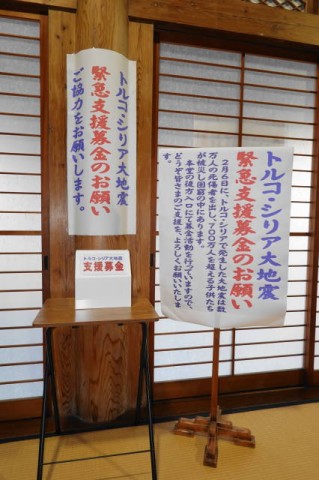 トルコ・シリア大地震
緊急支援募金のお願い
ご協力をお願いします。
トルコ・シリア大地震
支援募金
トルコ・シリア大地震
緊急支援募金のお願い
2月6日に、トルコ・シリアで発生した大地震は数
万人の死傷者を出し、700万人を超える子供たち
が被災し困窮の中にあります。
本堂の後方入口にて募金活動を行っていますので、
どうぞ皆さまのご支援を、よろしくお願いいたしま
す。